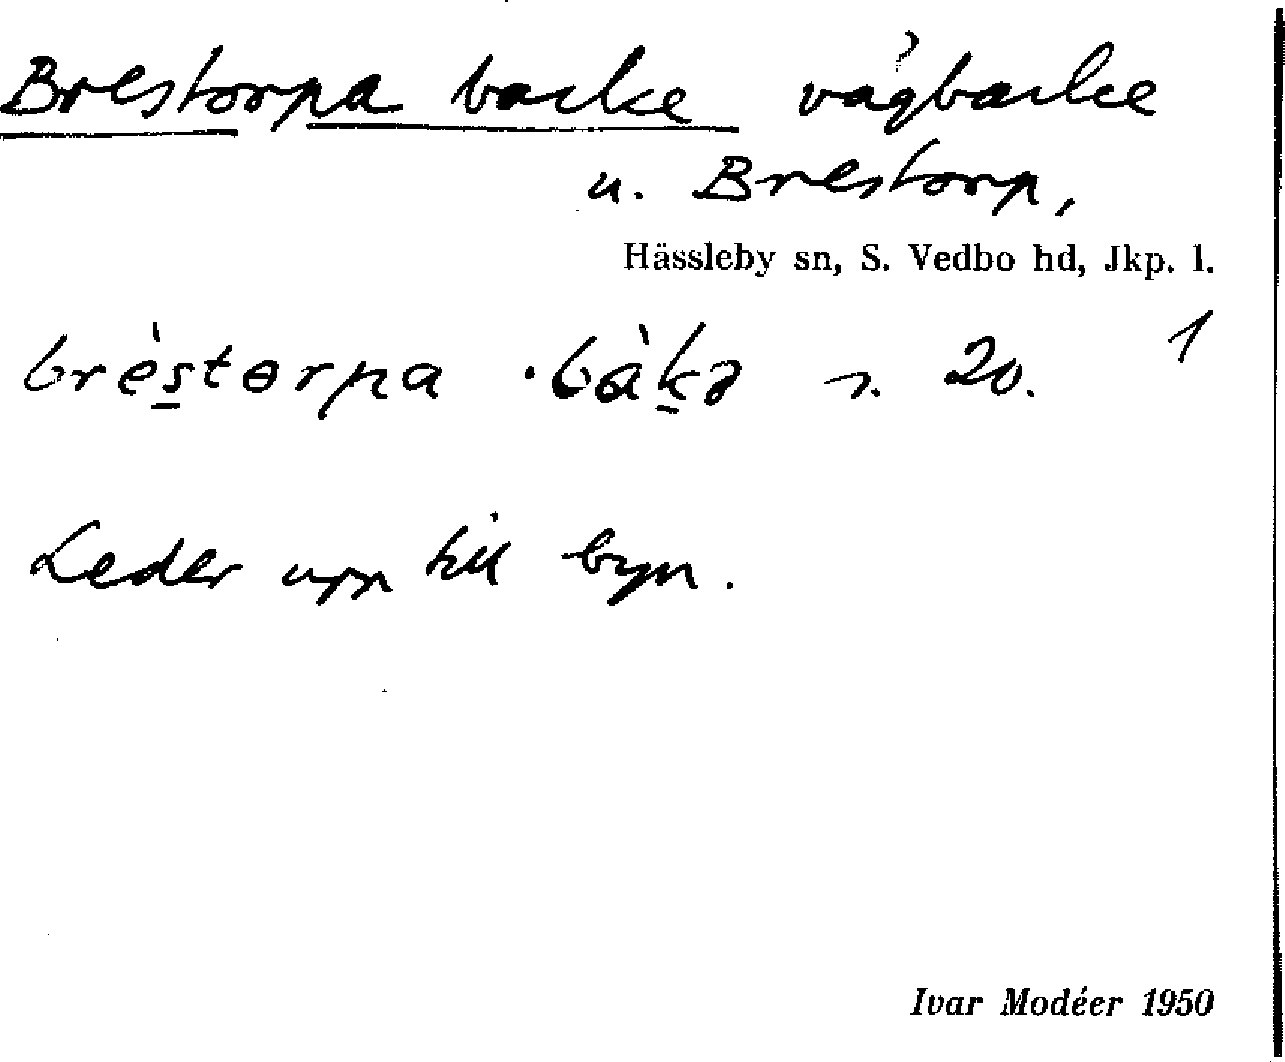 Brestorpa backe vägbacke
u. Brestorp,
Hässleby sn, S. Vedbo hd, Jkp. l.
1
brèstɵrpa ·bàkə n. 20.
Leder upp till byn.
Ivar Modéer 1950